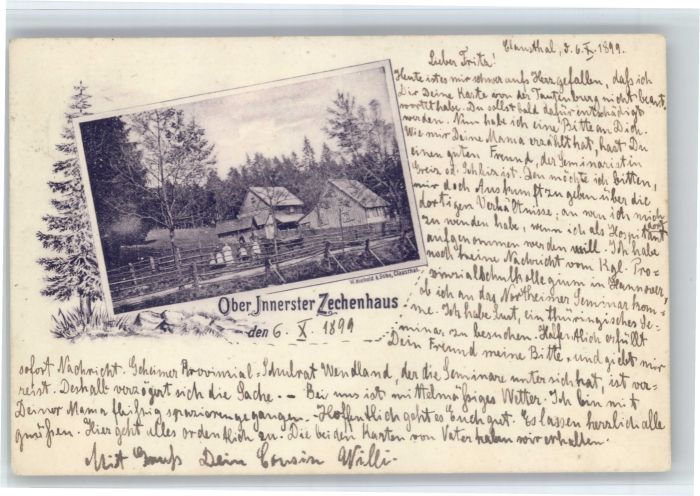 Clausthal, d. 6. X. 1899.
Lieber Fritz!
Heute ist es mir schwer aufs Herz gefallen, daß ich
Dir Deine Karte von der Tautenburg nicht beant-
wortet habe. Du sollst bald dafür entschädigt
werden. Nun habe ich eine Bitte an Dich.
Wie mir Deine Mama erzählt hat, hast Du
einen guten Freund, der Seminarist in
Greiz od. Schleiz ist. Den möchte ich bitten,
mir doch Auskunft zu geben über die
dortigen Verhältnisse, an wen ich mich
zu wenden habe, wenn ich als Hospitant dort
aufgenommen werden will. Ich habe
noch keine Nachricht vom Kgl. Pro-
vinzialschulkollegium in Hannover,
ob ich an das Northeimer Seminar kom-
me. Ich habe Lust, ein thüringisches Se-
minar zu besuchen. Hoffentlich erfüllt
Dein Freund meine Bitte, und giebt mir
W. Niehold & Sohn, Clausthal.
Ober Innerster Zechenhaus
den 6. X 1899
sofort Nachricht. Geheimer Provinzial-Schulrat Wendland, der die Seminare unter sich hat, ist ver-
reist. Deshalb verzögert sich die Sache. -- Bei uns ist mittelmäßiges Wetter. Ich bin mit
Deiner Mama fleißig spazierengegangen. Hoffentlich geht es Euch gut. Es lassen herzlich alle
grüßen. Hier geht alles ordentlich zu. Die beiden Karten von Vater haben wir erhalten.
Mit Gruß Dein Cousin Willi.